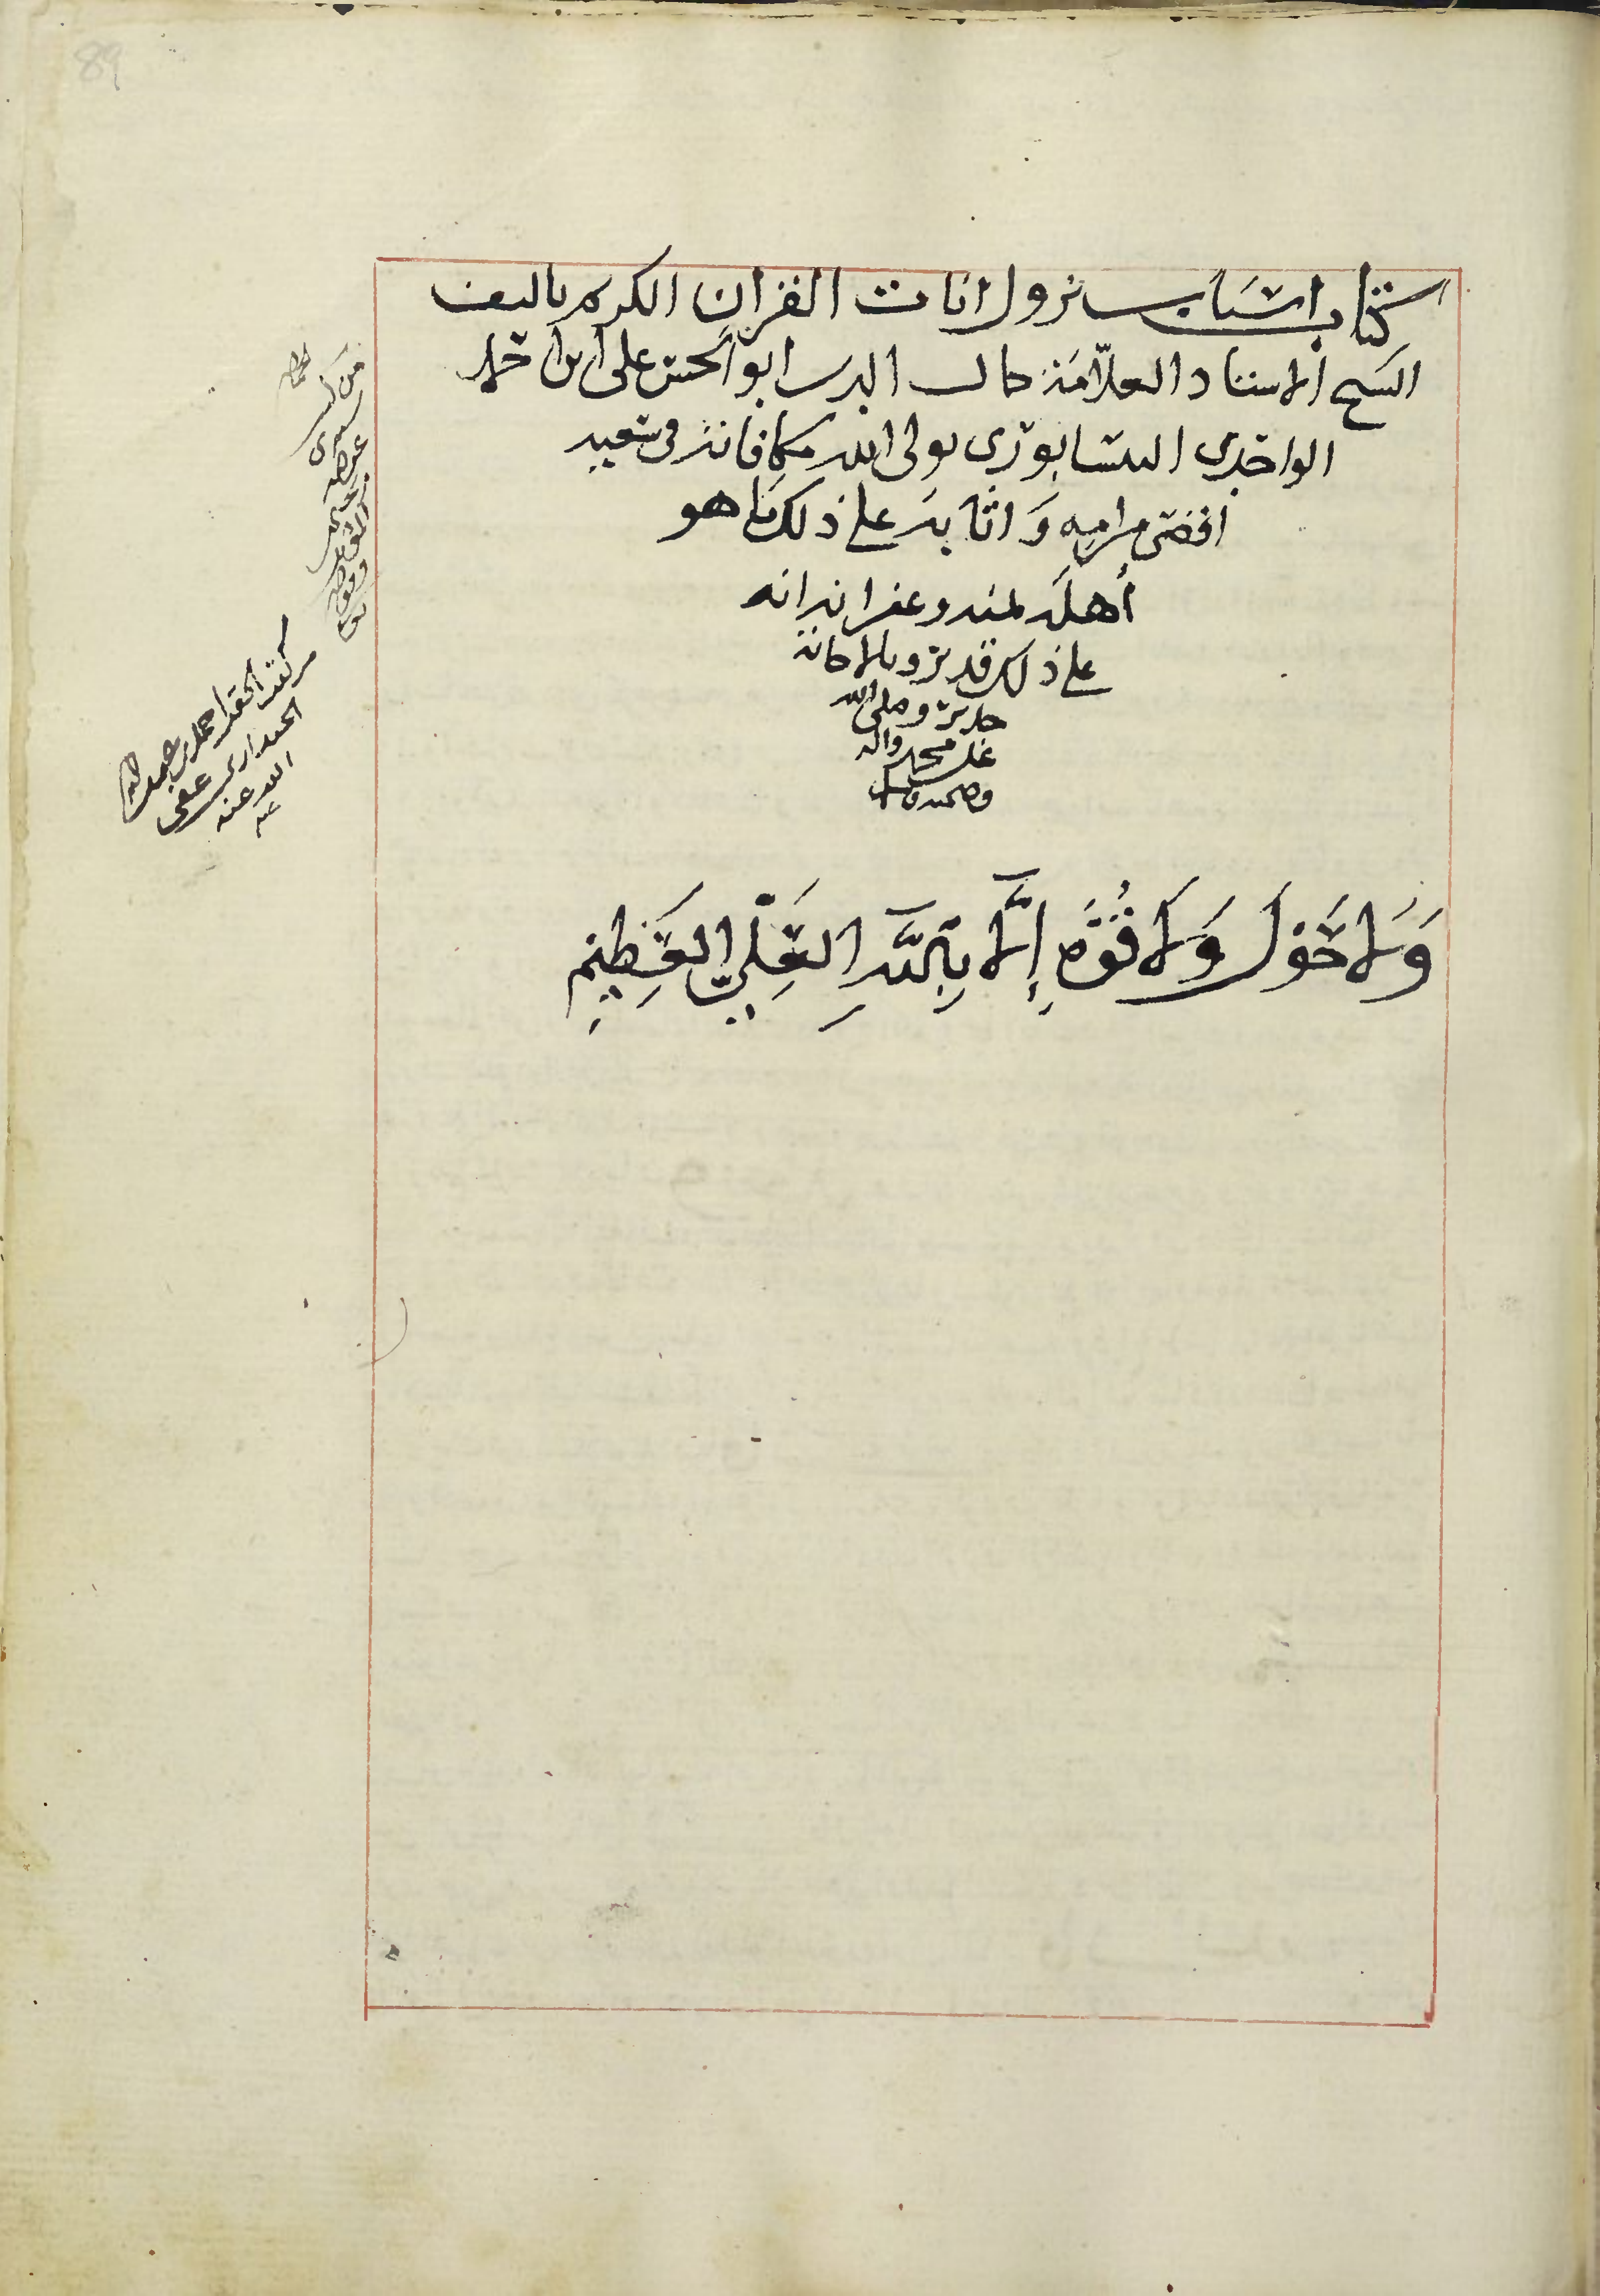 كتاب اسباب نزول ايات القران الكريم تاليف
الشيخ الاستاد العلامة جمال الدين ابو الحسن علي ابن احمد
الواحدي النيسابوري تولى الله مكافاته في
اقصى مرامه و اثابه على ذلك ما هو
أهله بمنه وغفرانه انه
على ذلك قدير وبالاجابة
جدير وصلى الله
على محمد واله
وصحبه وسلم
وَلا حَوْلَ وَلا قُوَّه إِلَّا بِاللَّهِ العَلِيِّ العَظِيْمِ
من كتب
سيدي
من كتب احمد بن
عفى
الله عنه
89